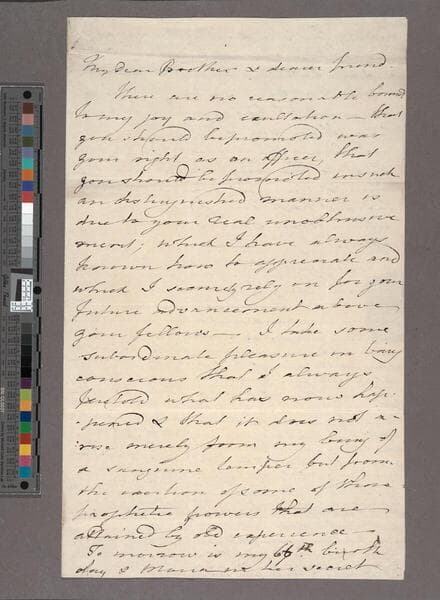 My dear Brother & dearer friend.
There are no reasonable bounds
to my joy and exultation — that
you should be promoted was
your right as an officer, that
you should be promoted in such
an distinguished manner is
due to your real unobtrusive
merit; which I have always
known how to appreciate and
which I securely rely on for your
future advancement above
your fellows — I take some
subordinate pleasure in being
conscious that I always
foretold what has now hap-
pened & that it does not a-
rise merely from my being of
a sanguine temper but from
the exertion of some of those
prophetic powers that are
attained by old experience —
To morrow is my 66th birth
day & Maria in her secret